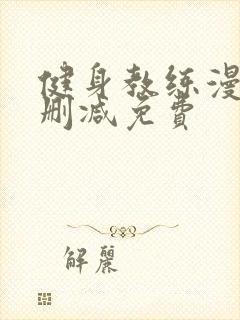 健身教练漫
删减免费
解麗